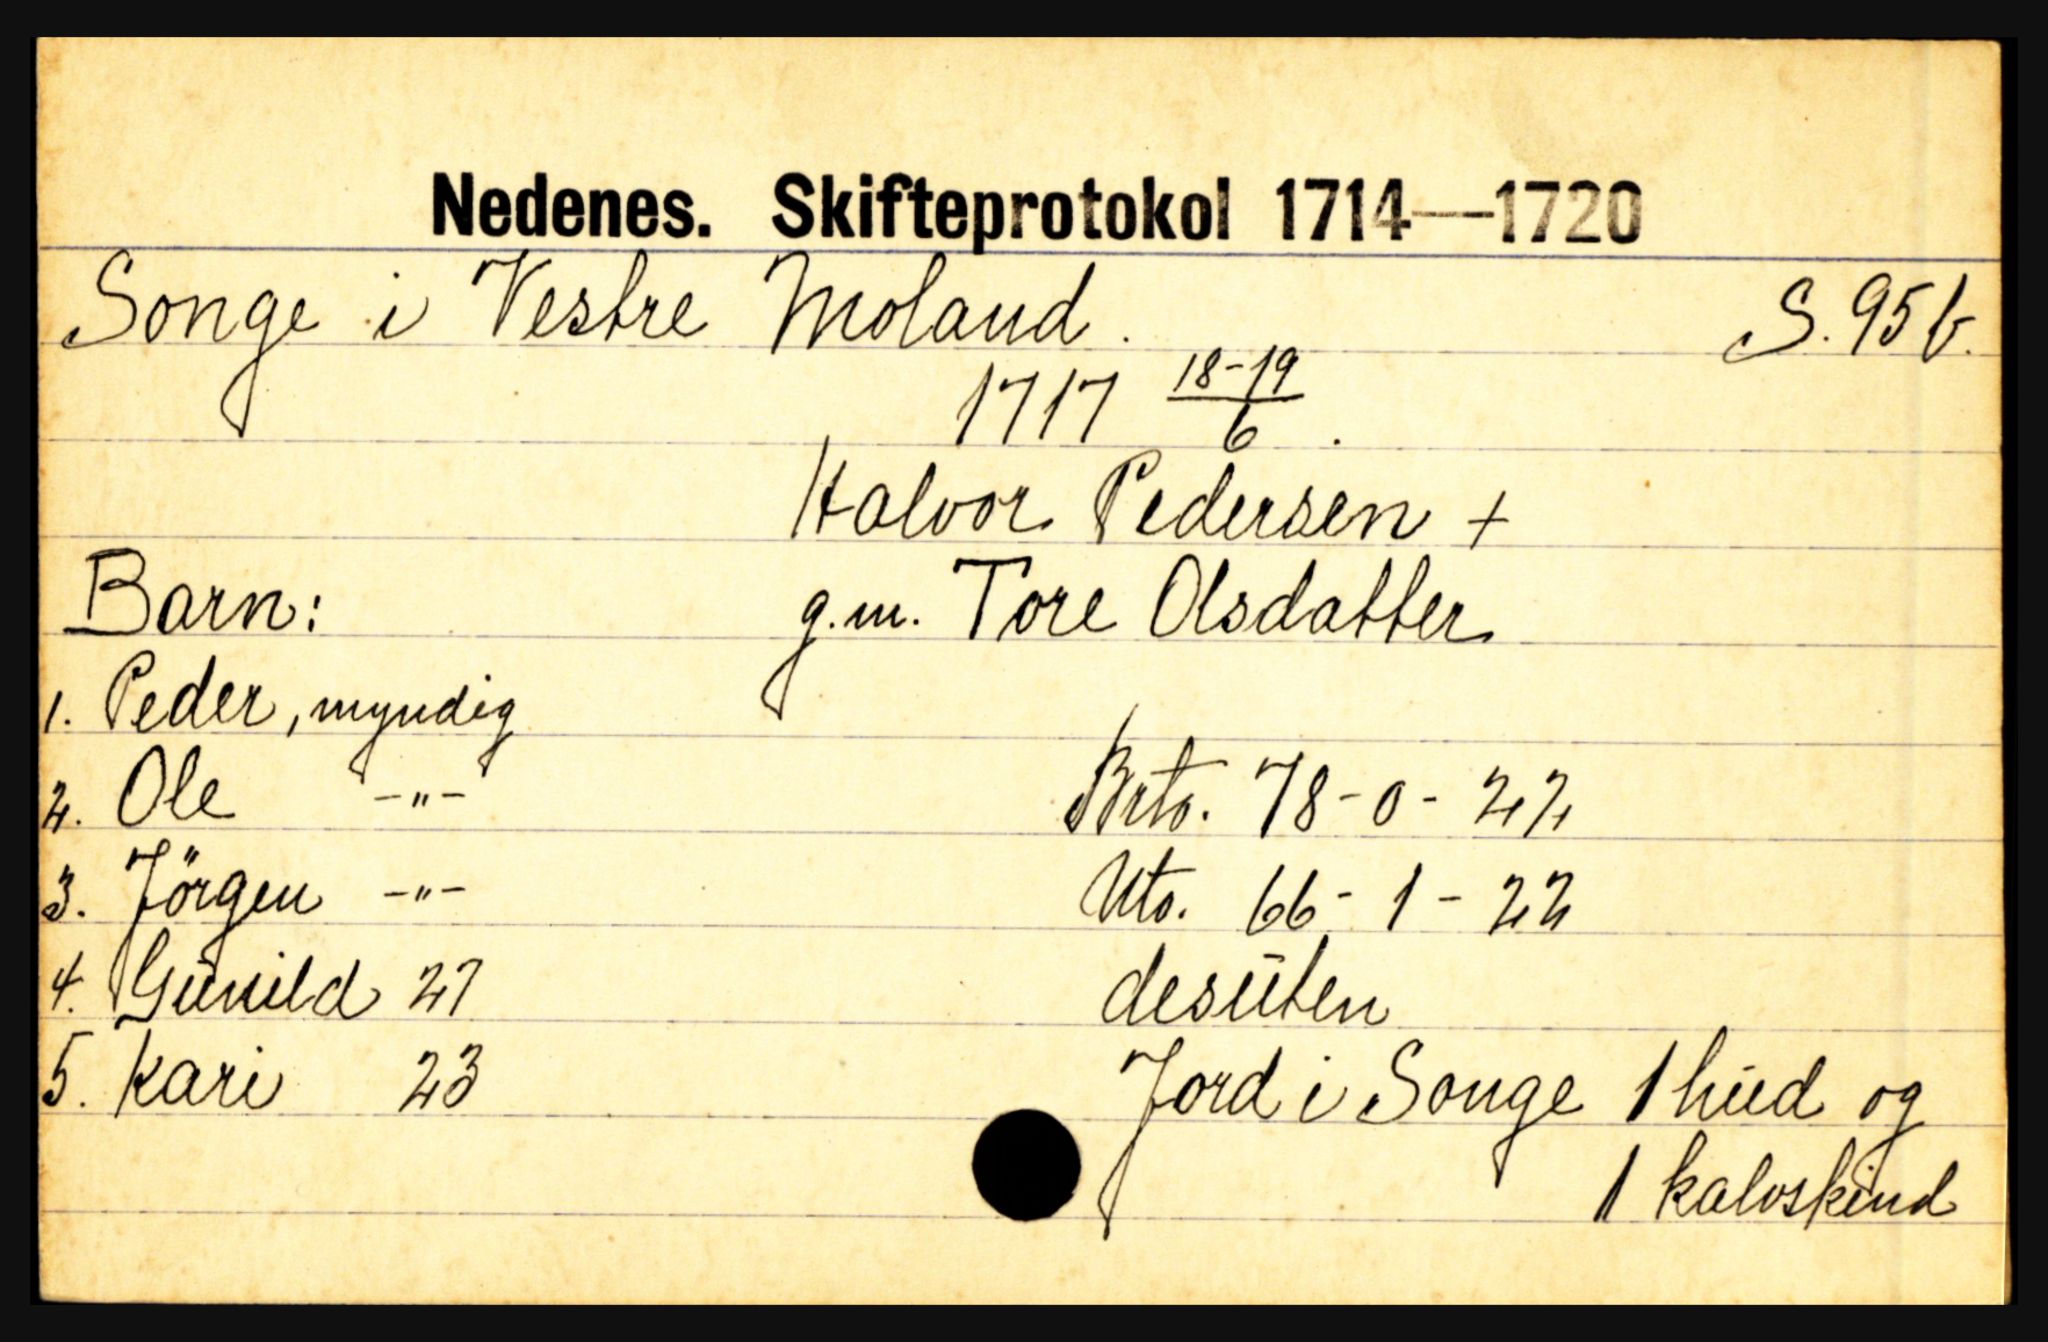 Nedenes. Skifteprotokol 1714—1720
Songe i Vestre Moland. S. 95 b.
1717 18-19/6.
Halvor Pedersen +
Barn: g.m. Tore Olsdatter
1. Peder, myndig
2. Ole -"- Brto. 78-0-22
3. Jörgen -"- Nto. 66-1-22
4. Gŭnild 27 desŭten
5. Kari 23 Jord i Songe 1 hŭd og
1 kalvskind